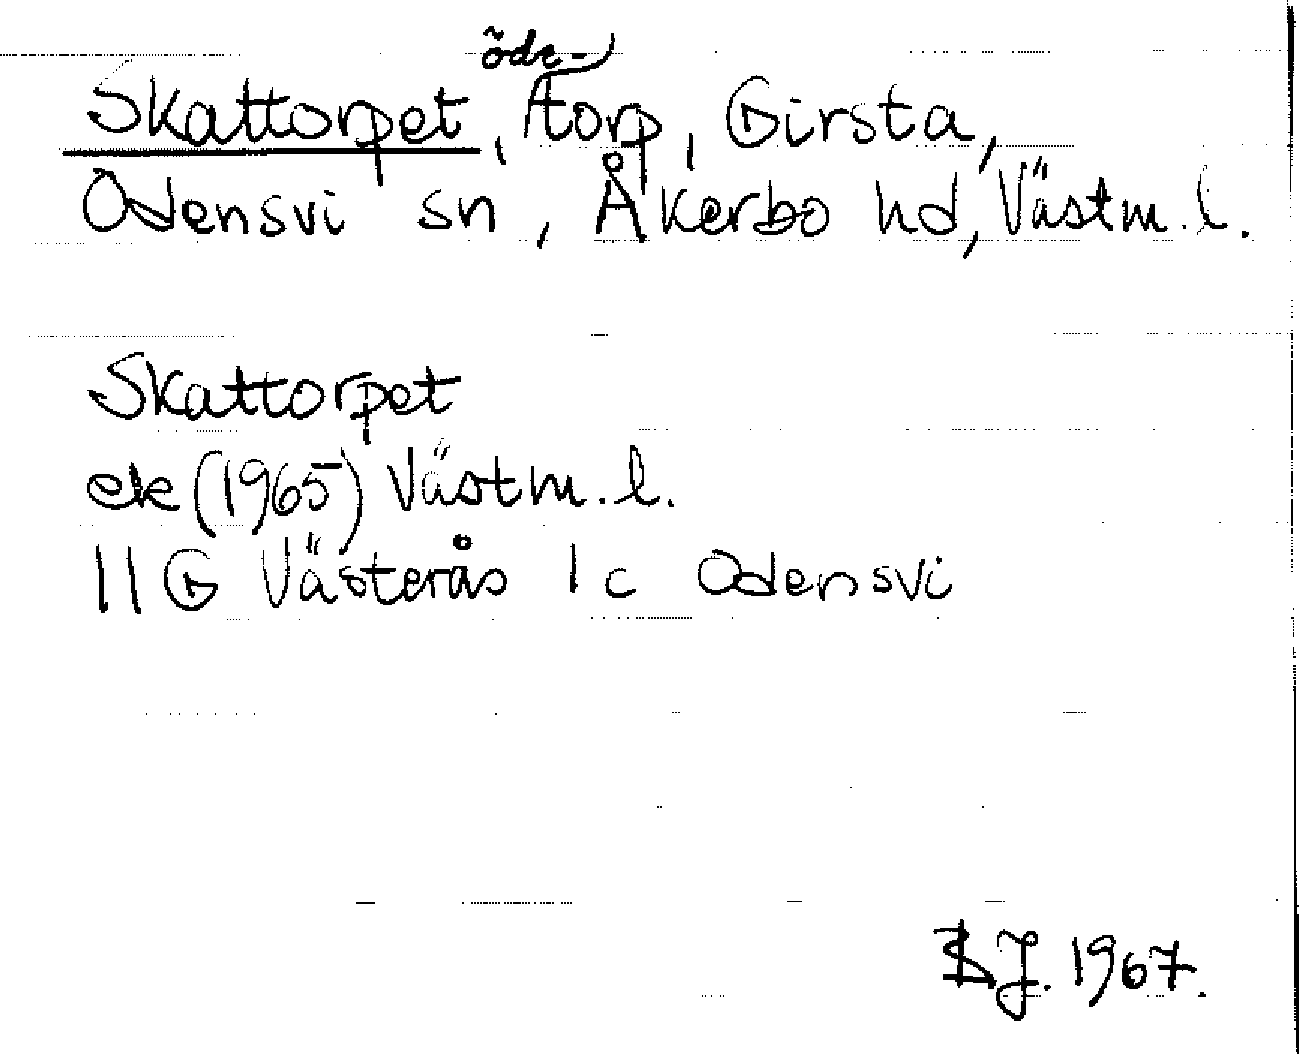 öde-
Skattorpet, torp, Girsta,
Odensvi sn, Åkerbo hd, Västm. l.
Skattorpet
ek (1965) Västm. l.
11G Västerås 1c Odensvi
BJ. 1967.